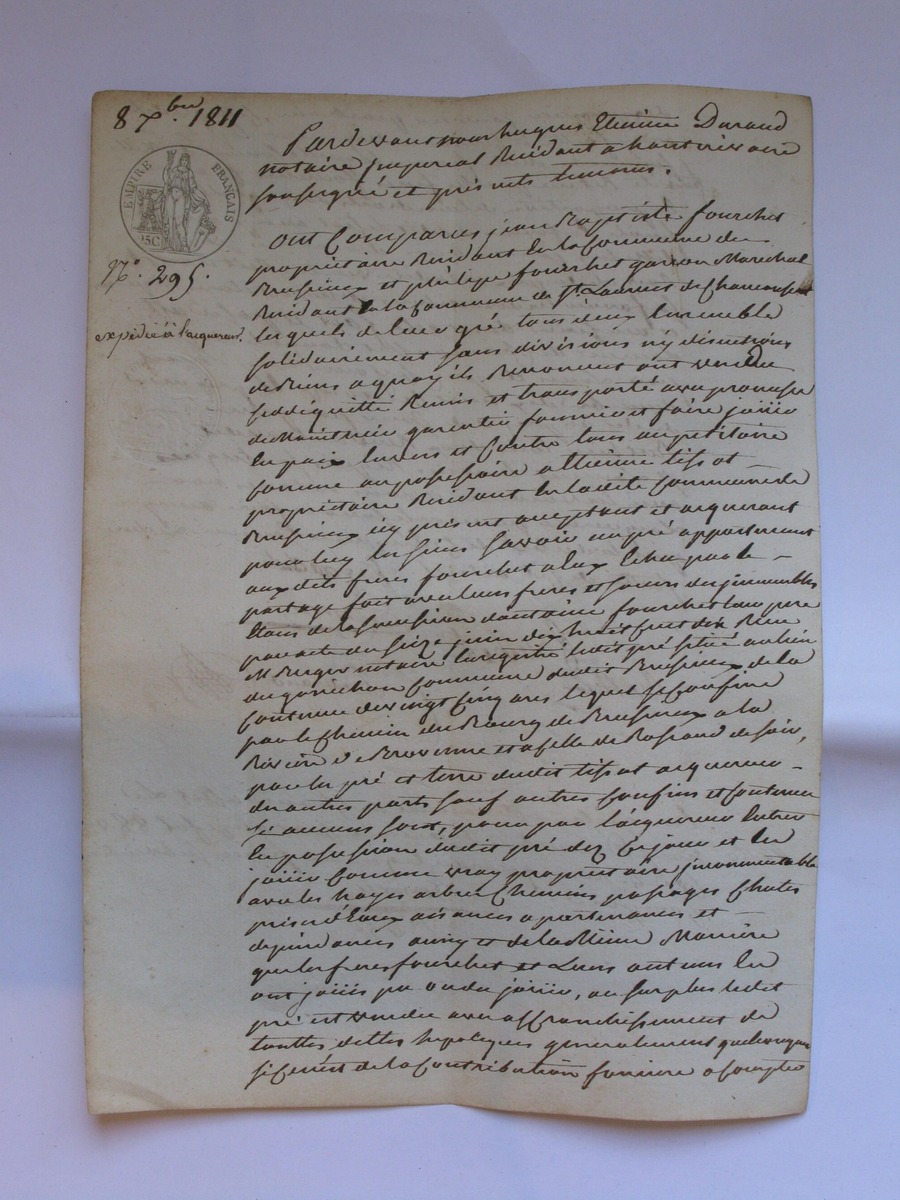 8 xbre 1811
EMPIRE FRANÇAIS
25C
N.° 295.
expédié à l'acquereur.
Pardevant nous hugues Etienne Durand
notaire imperial Residant a hauterivoire
soussigné et presents temoins.
ont Comparus jean Baptiste fourchet
proprietaire Residant En la Commune de
Brussieux et philipe fourchet garcon Marechal
Residant En la Commune de St. Laurent de Chamousset
lesquels de leur gré tous deux Ensemble
solidairement sans divisions ny discutions
de Biens a quoy ils Renoncent ont vendu
cedé quitté Remis et transporté avec promesse
de Maintenir garentir fournir et faire joüir
En paix Envers et Contre tous au petitoire
comme au posessoire a Etienne tissot
proprietaire Residant En ladite Commune de
Brussieux icy present acceptant et acquerant
pour luy les siens savoir un pré appartenant
aux dits freres fourchet a Eux Echu par le
partage fait avec leurs freres et soeurs des jmmeubles
Etans de la sucession dantoine fourchet leur pere
par acte du seize juin dix huit cent dix Recu
M Berger notaire Enregistré ledit pré situé au lieu
du garichon Commune dudit Brussieux de la
Contenue de vingt Cinq ares lequel se Confine
par le Chemin du Bourg de Brussieux a la
Riviere de Brevenne et a celle de Rossand de soir,
par les pré et terre dudit tissot acquereur
des autres parts sauf autres Confins et Contenue
si aucuns sont, pour par l'acquereur Entrer
En posession dudit pré dez Ce jour et En
joüir Comme vray proprietaire jncommutable
avec les hayes arbres Chemins pasages Chutes
prises d'Eaux aisances apartenances et
dependances ainsy et de la Même Maniere
que les freres fourchet et Leurs auteurs En
ont joüis pu ou du joüir, au surplus ledit
pré est vendu avec affranchissement de
touttes dettes hipoteques generalement quelconques
si Cenest de la Contribution fonciere a Compter